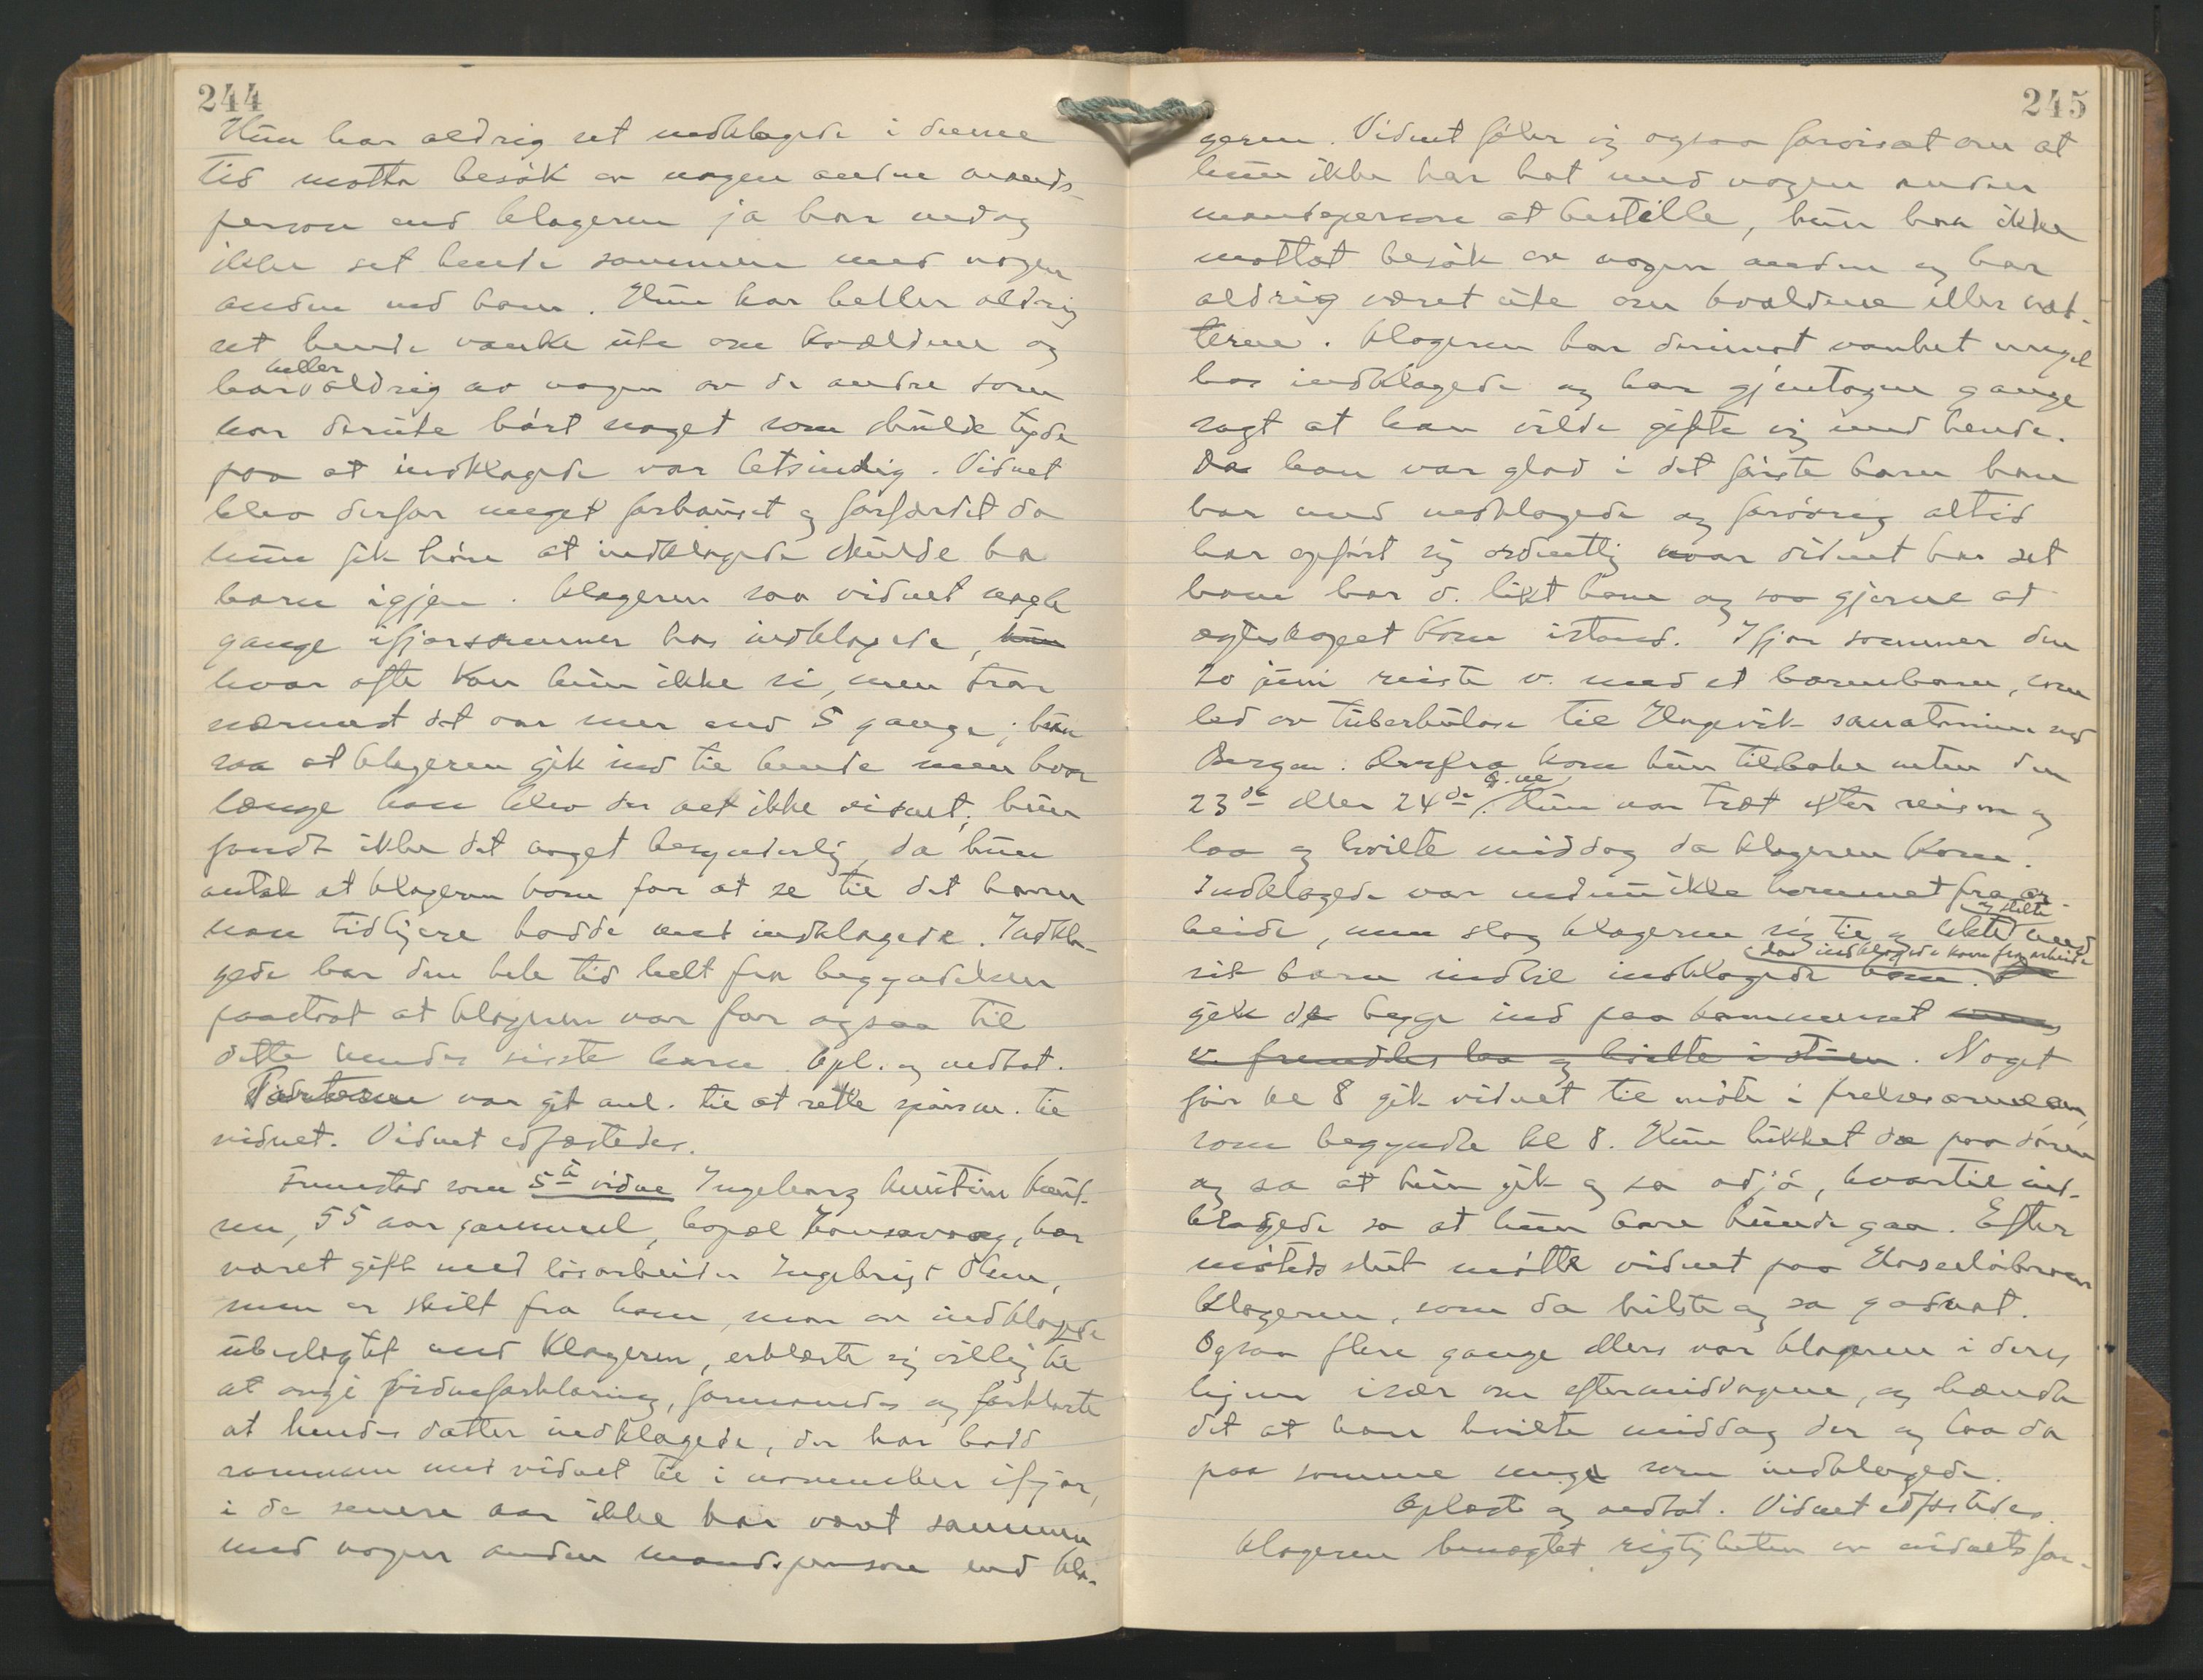 244
Hun har aldrig set indklagede i denne
tid motta besøk av nogen anden mands-
person end klageren ja har endog
ikke set hende sammen med nogen
anden end ham. Hun har heller aldrig
set hende vanke ute om kvældene og
heller
har aldrig av nogen av de andre som
bor derute hørt noget som skulde tyde
paa at indklagede var letsindig. Vidnet
blev derfor meget forbauset og forfærdet da
hun fik høre at indklagede skulde ha
barn igjen. Klageren saa vidnet nogle
gange ifjorsommer hos indklagede, hun
hvor ofte kan hun ikke si, men tror
nærmest det var mer end 5 gange; hun
saa at klageren gik ind til hende men hvor
længe han blev der vet ikke vidnet; hun
fandt ikke det noget besynderlig, da hun
antok at klageren kom for at se til det barn
han tidligere hadde med indklagede. Indkla-
gede har den hele tid helt fra begyndelsen
paastaat at klageren var far ogsaa til
dette hendes siste barn. Opl. og vedtat.
Parterne var git anl. til at rette spørsm. til
vidnet. Vidnet edfæstedes.
Fremstod som 5te vidne Ingeborg Knud-
sen, 55 aar gammel, bopæl, har
været gift med løsarbeider Ingebrigt Olsen,
men er skilt fra ham, mor av indklagede
ubeslegtet med Klageren, erklærte sig villig til
at avgi vidneforklaring, formanedes og forklarte
at hendes datter indklagede, der har bodd
sammen med vidnet til i november ifjor,
i de senere aar ikke har været sammen
med nogen anden mandsperson end kla-
245
geren. Vidnet føler sig ogsaa forvisset om at
hun ikke har hat med nogen anden
mandsperson at bestille, hun har ikke
mottat besøk av nogen anden og har
aldrig været ute om kvældene eller næt-
terne. Klageren har derimot vanket meget
hos indklagede og har gjentagne gange
sagt at han vilde gifte sig med hende.
Da han var glad i det første barn han
har med indklagede og forøvrig altid
har opført sig ordentlig naar vidnet har set
ham har v. likt ham og saa gjerne at
egteskapet kom istand. Ifjor sommer den
20 juni reiste v. med et barnebarn, som
led av tuberkulose til Hagevik sanatorium ved
Bergen. Derfra kom hun tilbake enten den
23de eller 24de s. m. Hun var træt efter reisen og
laa og hvilte middag da klageren kom.
Indklagede var endnu ikke kommet fra ar-
og stelte
beide, men slog klageren sig til og lekte med
da indklagede kom fra arbeide
sit barn indtil indklagede kom. Da
gik de begge ind paa kammerset mens
v. fremdeles laa og hvilte i stuen. Noget
før kl 8 gik vidnet til møte i frelsesarmeen,
som begyndte kl 8. Hun bikket da paa døren
og sa at hun gik og sa adjø, hvortil ind-
klagede sa at hun bare kunde gaa. Efter
møtets slut møtte vidnet paa
klageren, som da hilste og sa godnat.
Ogsaa flere gange ellers var klageren i deres
hjem især om eftermiddagene, og hændte
det at han hvilte middag der og laa da
paa samme seng som indklagede.
Oplæst og vedtat. Vidnet edfæstedes.
Klageren benegtet rigtigheten av vidnets for-